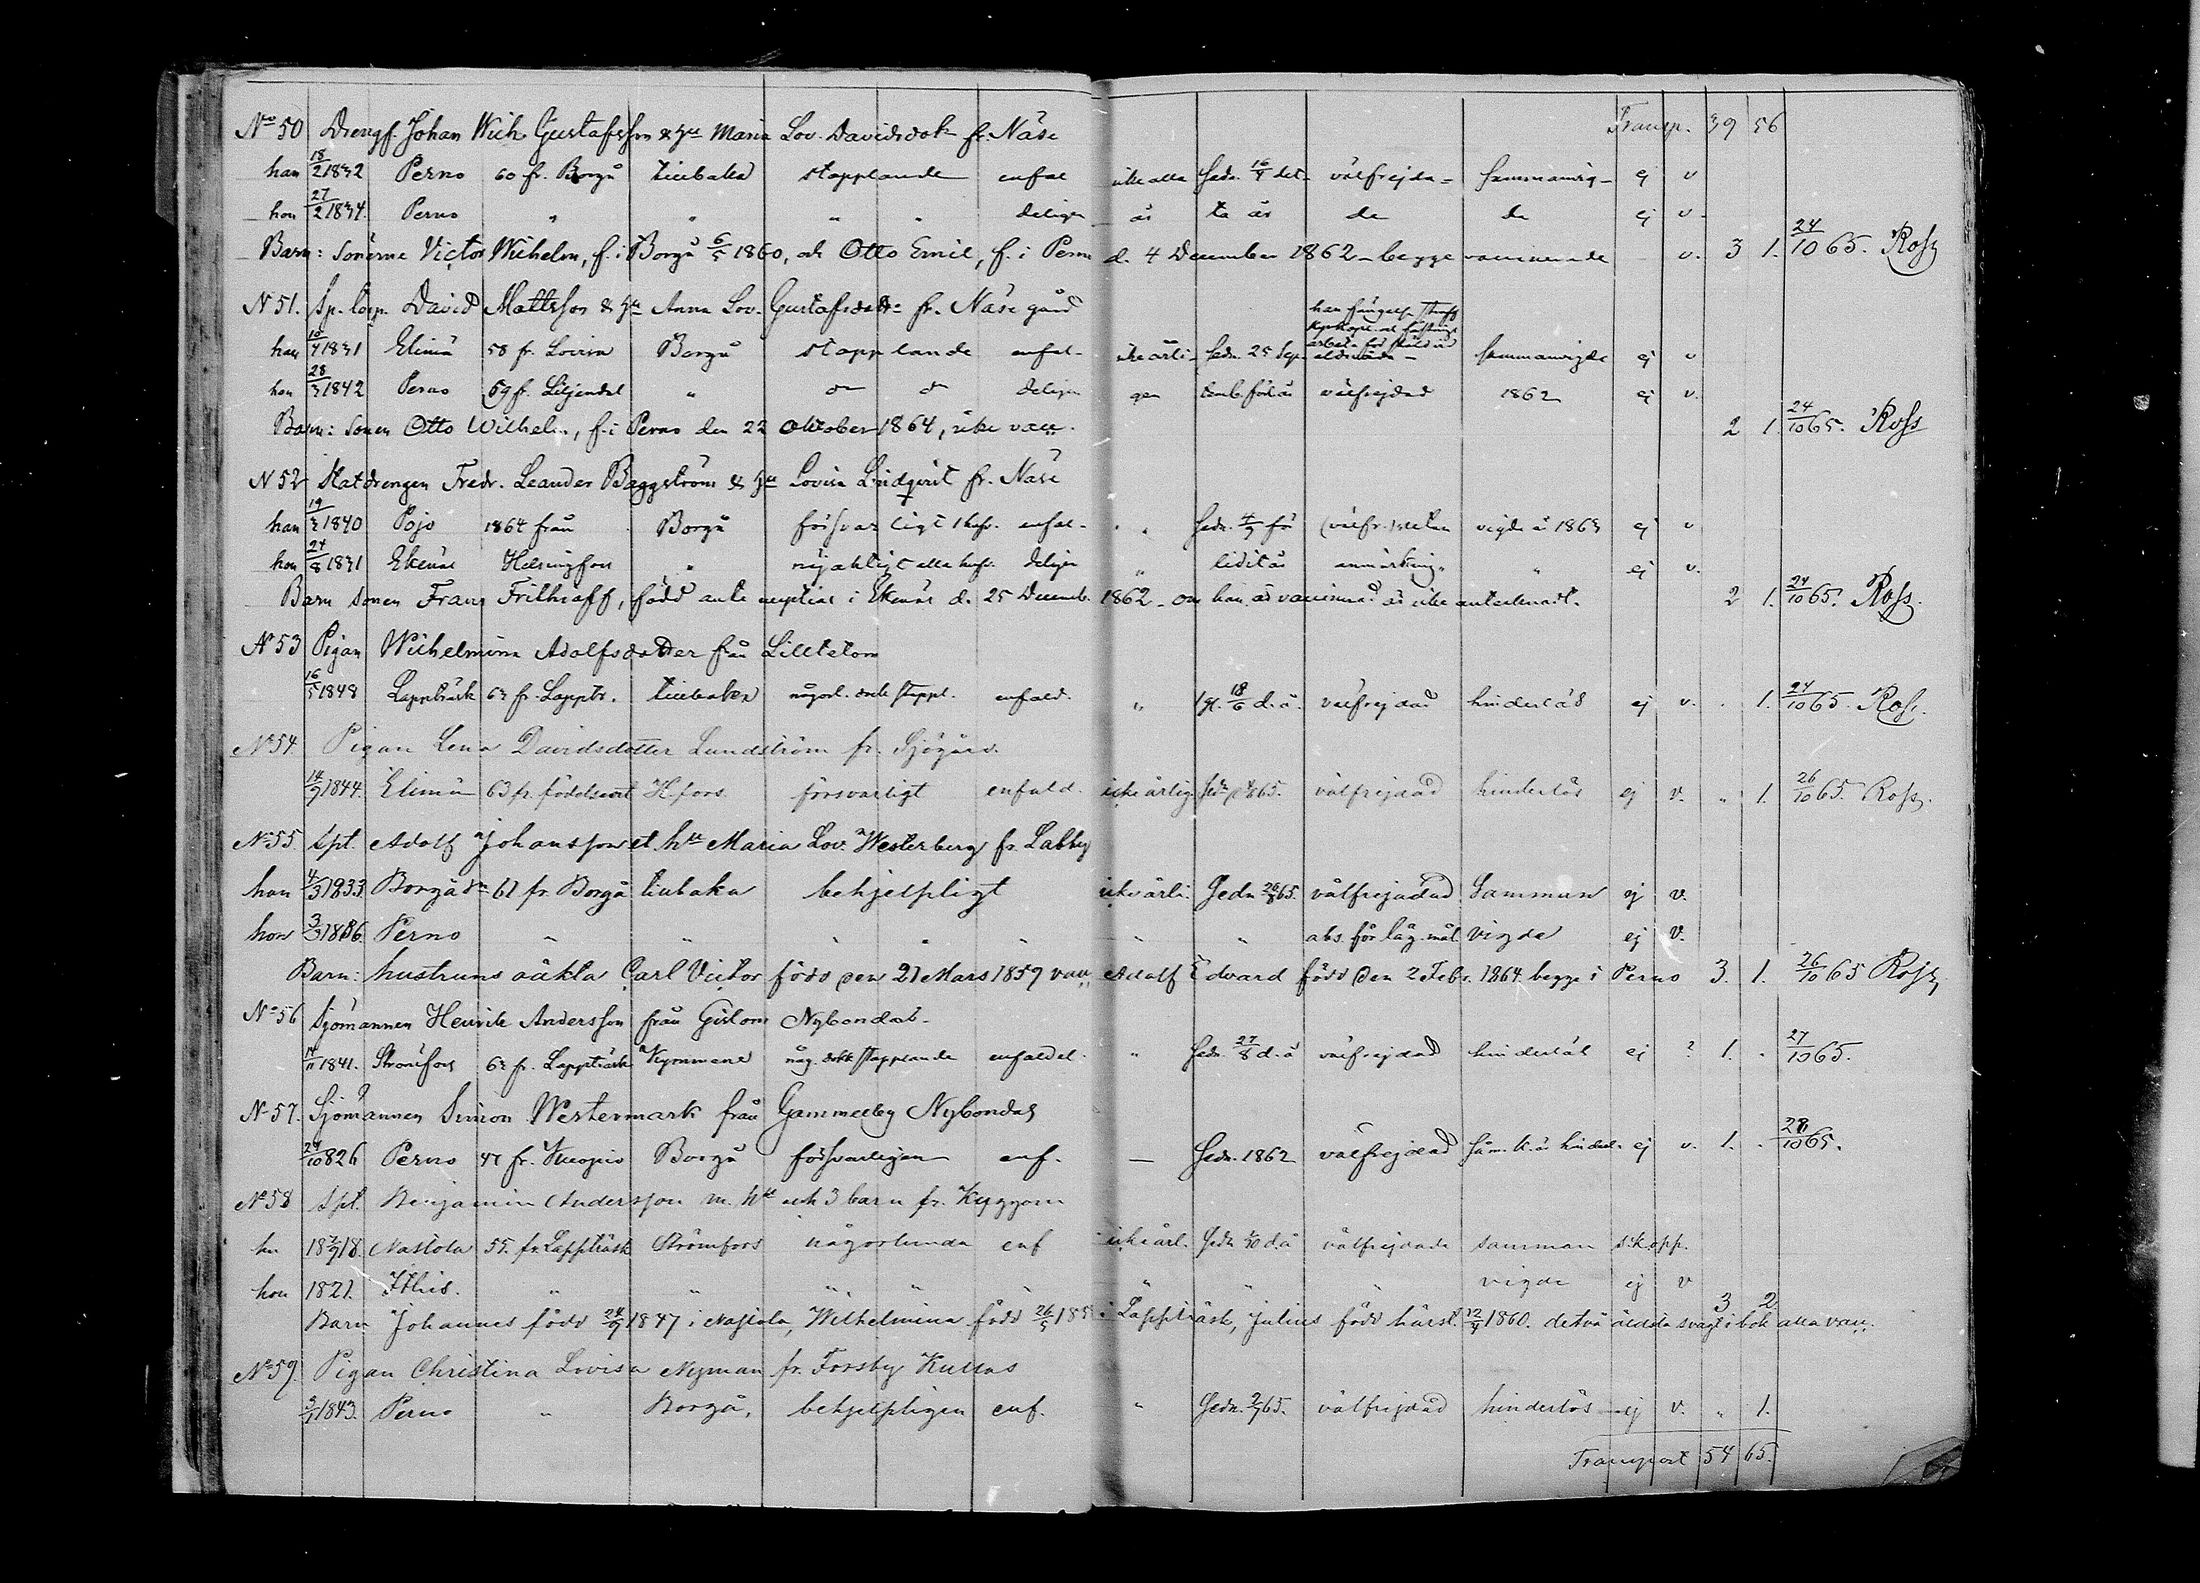 Transp. 39 56
No 50 Drengf. Johan Wilh. Gustafsson & hu Maria Lov. Davidsdotr fr. Näse
han 18/2 1832 Perno 60 fr. Borgå tillbaka stapplande enfal icke alla Hedn. 16/4 det- välfrejda- sammanvig- ej v
hon 27/2 1834 Perno " " " " deligen år ta år de de ej v.
Barn: sönerne Victor Wilhelm, f. i Borgå 6/5 1860, och Otto Emil, f. i Perno d. 4 December 1862 - begge vaccinerade v. 3 1. 24/10 65. Ross
N 51. Sp. torp. David Mattsson & hu Anna Lov. Gustafsdottr fr. Näse gård
han 10/4 1831 Elimä 58 fr. Lovisa Borgå stapplande enfal- icke årli- Hedn. 25 Sep- sammanvigde ej v
hon 28/3 1842 Perno 59 fr. Liljendal " " " deligen gen temb. förl. år välfrejdad 1862 ej v.
Barn: sonen Otto Wilhelm, f. i Perno den 22 Oktober 1864, icke vacc. 2 1. 24/10 65. Ross
N 52 Statdrengen Fredr. Leander Baggström & hu Lovisa Lindqvist fr. Näse
han 19/3 1840 Pojo 1864 från Borgå försvarligt enfal- " Hedn. 4/9 för (välfr.) utan vigde å 1863 ej v
hon 24/8 1831 Ekenäs Helsingfors " nöjaktigt deligen " lidit år anmärkning " ej v.
Barn sonen Franz Frithioff, född ante nuptias i Ekenäs d. 25 Decemb. 1862 - om han är vaccinerad är icke antecknadt. 2 1. 24/10 65. Ross.
N 53 Pigan Wilhelmina Adolfsdotter från Lilltótom
16/5 1848 Lappträsk 63 fr. Lapptr. tillbaka någorl. dock stappl. enfald. " 18/6 d. å. välfrejdad hinderlös ej v. . 1. 24/10 65. Ross.
No 54. Pigan Lena Davidsdotter Lundström fr. Sjögård.
14/9 1844. Elimä 63 fr. födelseort H.fors. försvarligt enfald. icke årlig. välfrejdad hinderlös ej v. " 1. 26/10 65. Ross.
No 55. Spt. Adolf Johansson et. hu Maria Lov. Westerberg fr. Labby
han 4/3 1833 Borgå sn 61 fr. Borgå tillbaka behjelpligt icke årli. Hedn 20/8 65. välfrejdad Samman ej v.
hon 3/3 1836. Perno " " " " " " " abs. för läg. mål. vigde ej v.
Barn: hustruns oäkta Carl Victor född den 21 Mars 1859 vacc, Adolf Edvard född den 2 Febr. 1864. begge i Perno 3. 1. 26/10 65 Ross.
No 56 Sjömannen Henrik Andersson från Gislom Nybondas.
14/11 1841. Strömfors 63 fr. Lappträsk Kymmene någ. dock stapplande enfaldel. " Hedn. 27/8 d. å välfrejdad hinderlös ej ? 1. . 27/10 65.
N 57. Sjömannen Simon Westermark från Gammelby Nybondas
24/10 826 Perno 47 fr. Kuopio Borgå försvarligen enf. — Hedn. 1862 välfrejdad ej v. 1. . 28/10 65.
No 58 Spt. Benjamin Andersson m. hu och 3 barn fr. Kuggom
hn 18 7/9 18. Nastola 55. fr. Lappträsk Strömfors någorlunda enf icke årl. Hedn d. å välfrejdade samman s. kopp.
hon 1821. Itthis. " " " " " " " " vigde ej v
Barn Johannes född 24/9 1847 i Nastola, Wilhelmina född 26/5 185 i Lappträsk, Julius född härst. 12/4 1860. de två äldsta svagt i bok alla vacc. 3 2.
No 59. Pigan Christina Lovisa Nyman fr. Forsby Kullas
1843. Perno " Borgå, behjelpligen enf. " Hedn. 2/7 65. välfrejdad hinderlös ej v. " 1.
Transport 54 65.